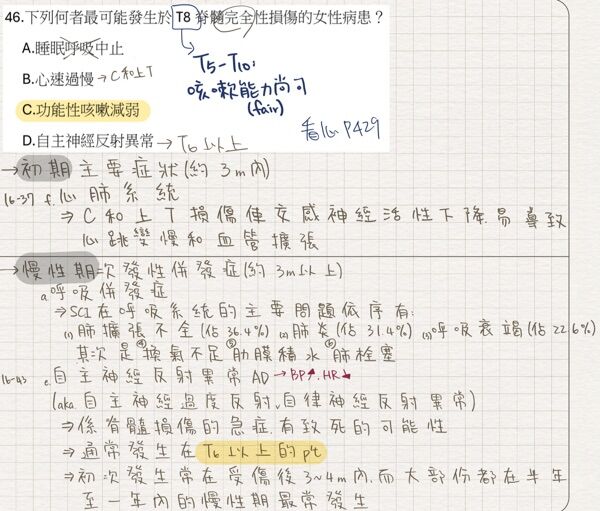 46.下列何者最可能發生於 T8 脊髓完全性損傷的女性病患？
A.睡眠呼吸中止
B.心速過慢 → C和上T
C.功能性咳嗽減弱
D.自主神經反射異常 → T6 以上
T5-T10:
咳嗽能力尚可
(fair)
看心 P429
→ 初期主要症狀(約 3m內)
16-37 f. 心肺系統
⇒ C 和上 T 損傷使交感神經活性下降.易導致
心跳變慢和血管擴張
→ 慢性期=次發性併發症(約 3m以上)
a.呼吸併發症
⇒SCI 在呼吸系統的主要問題依序有:
(1)肺擴張不全(佔36.4%) (2)肺炎(佔31.4%) (3)呼吸衰竭(佔22.6%)
其次是④換氣不足⑤肋膜積水⑥肺栓塞
16-43 e.自主神經反射異常 AD → BP↑. HR↓
(aka.自主神經過度反射.自律神經反射異常)
⇒係脊髓損傷的急症.有致死的可能性
⇒ 通常發生在 T6 以上的 pt
⇒初次發生常在受傷後 3~4m內.而大部份都在半年
至一年內的慢性期最常發生